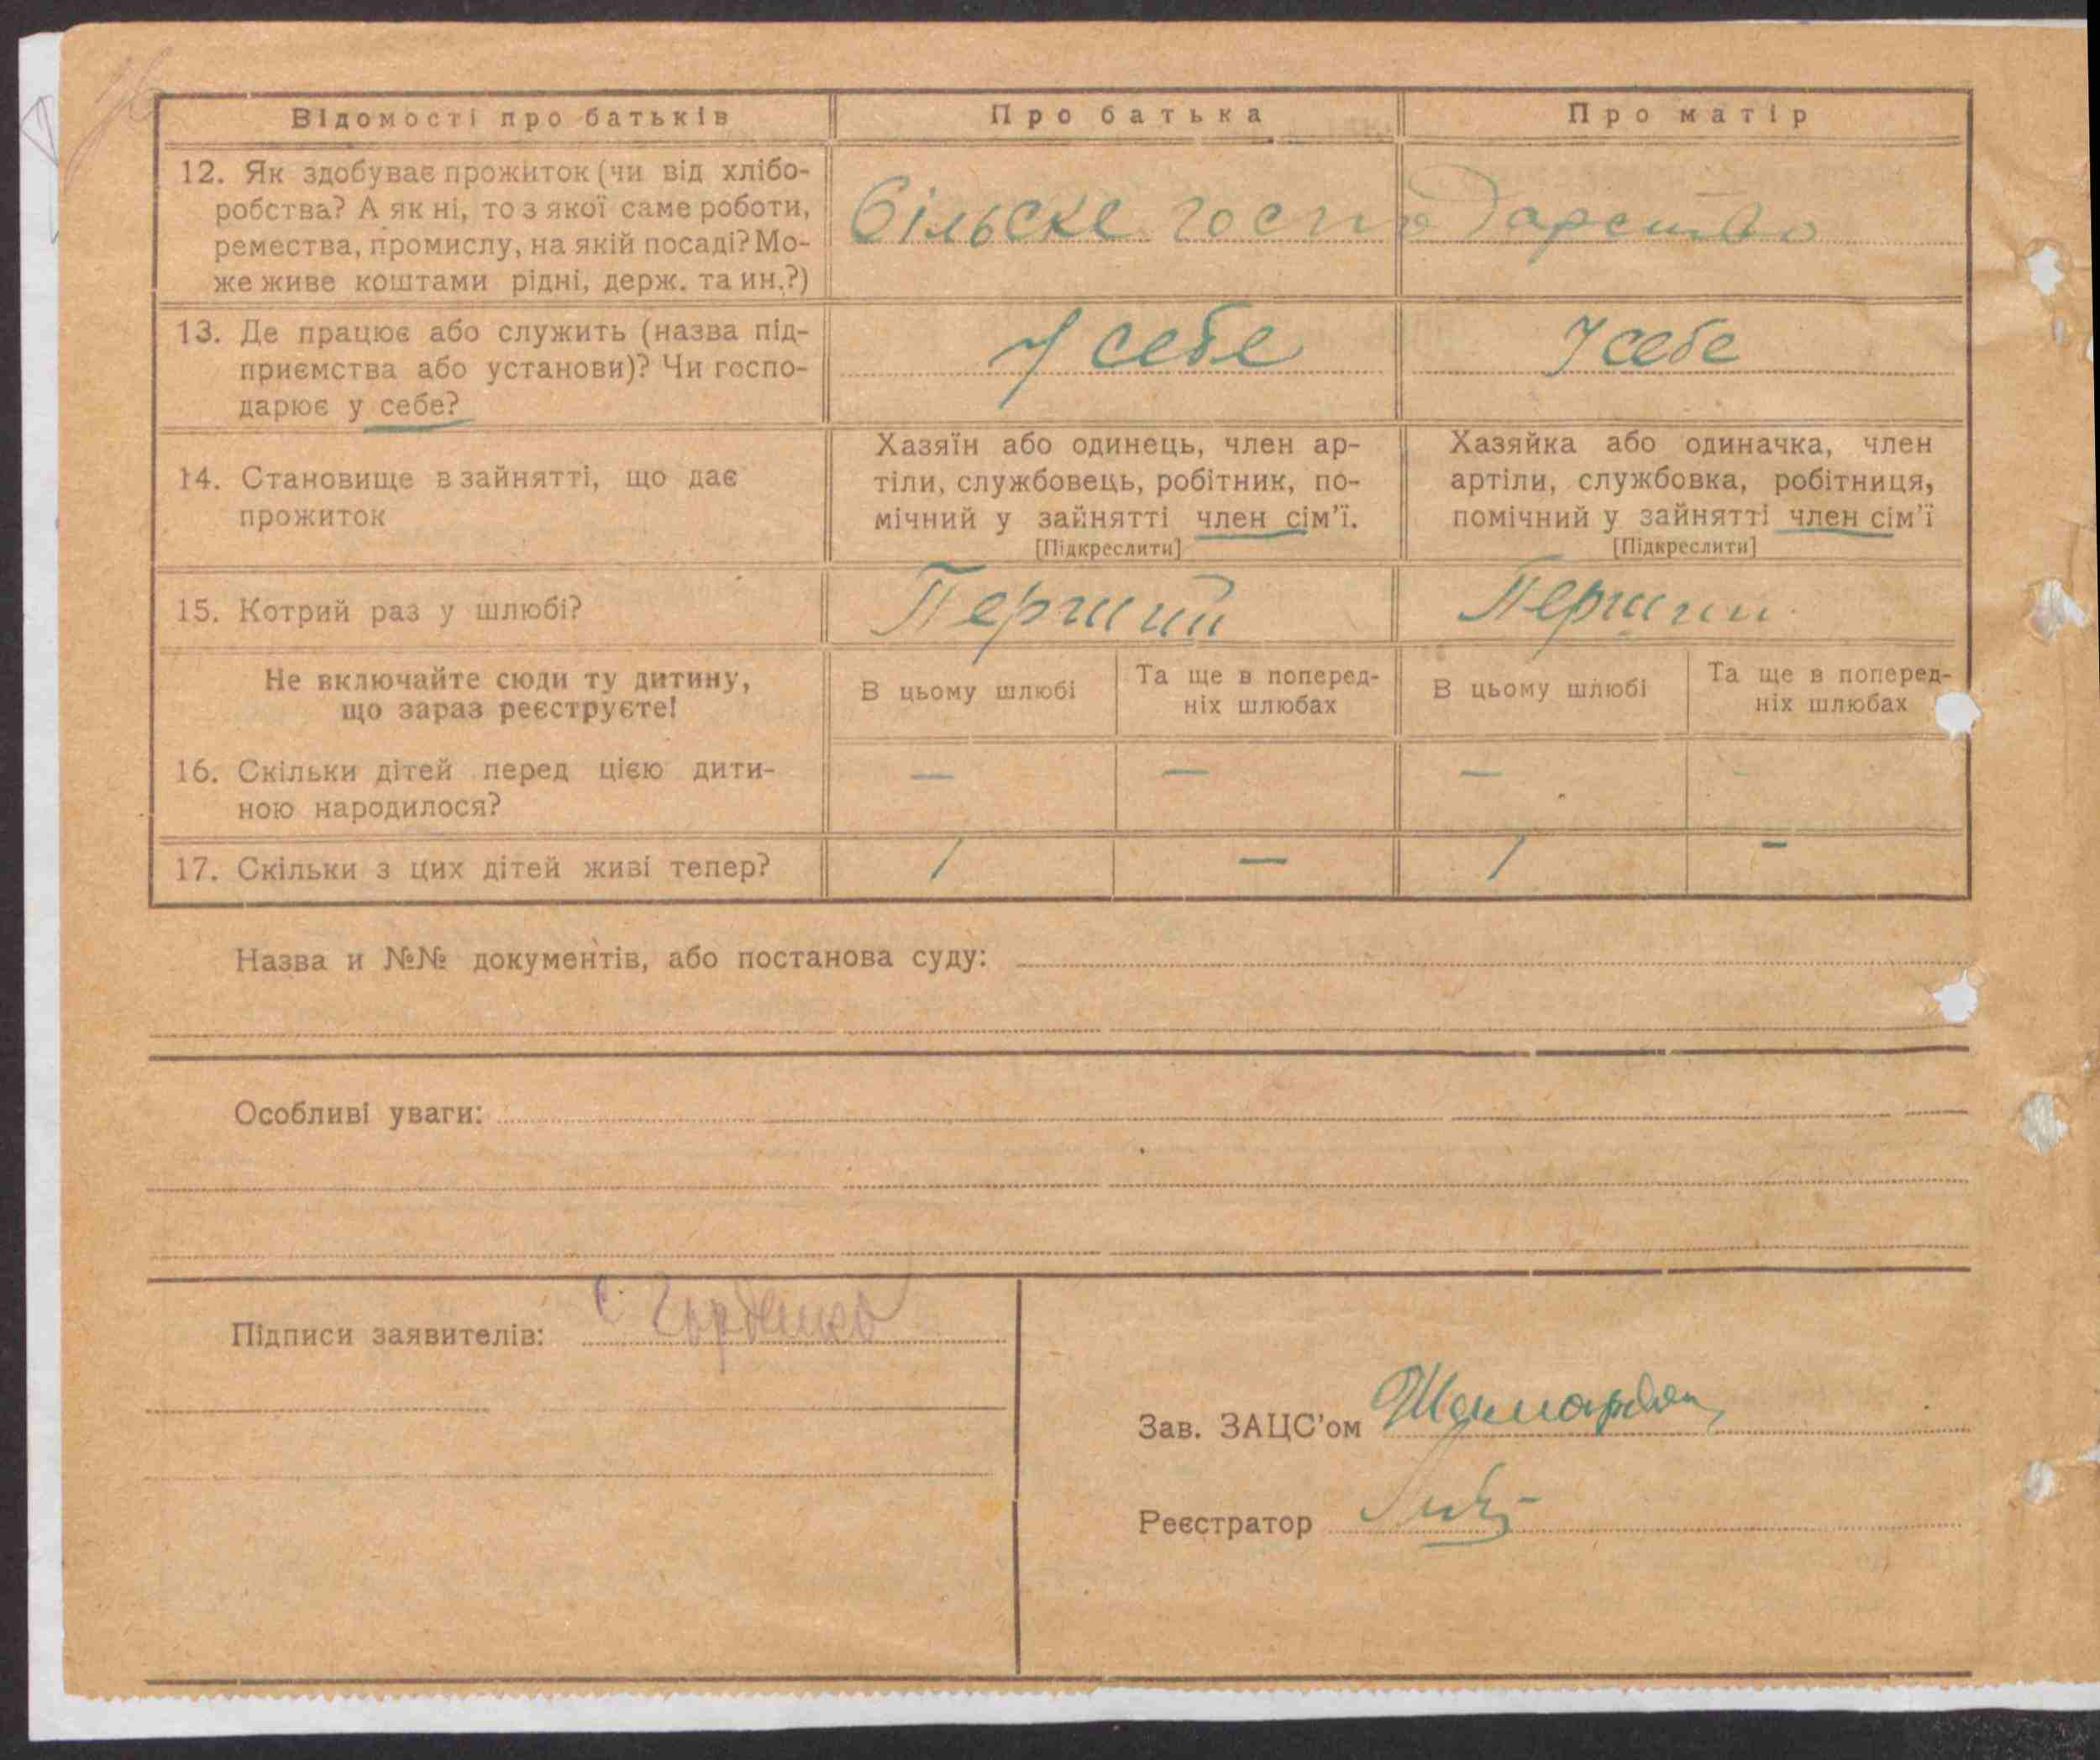 Відомості про батьків
Про батька
Про матір
12. Як здобуває прожиток (чи від хлібо-
робства? А як ні, то з якої саме роботи,
ремества, промислу, на якій посаді? Мо-
же живе коштами рідні, держ. та ин.?)
Сільске господарство
13. Де працює або служить (назва під-
приємства або установи)? Чи госпо-
дарює у себе?
У себе
У себе
14. Становище в зайнятті, що дає
прожиток
Хазяїн або одинець, член ар-
тіли, службовець, робітник, по-
мічний у зайнятті член сім'ї.
[Підкреслити]
Хазяйка або одиначка, член
артіли, службовка, робітниця,
помічний у зайнятті член сім'ї
[Підкреслити]
15. Котрий раз у шлюбі?
Перший
Перший
Не включайте сюди ту дитину,
що зараз реєструєте!
В цьому шлюбі
Та ще в поперед-
ніх шлюбах
В цьому шлюбі
Та ще в поперед-
ніх шлюбах
16. Скільки дітей перед цією дити-
ною народилося?
— — — -
17. Скільки з цих дітей живі тепер?
1 — 1 -
Назва и №№ документів, або постанова суду:
Особливі уваги:
Підписи заявителів:
Зав. ЗАЦС'ом
Реєстратор